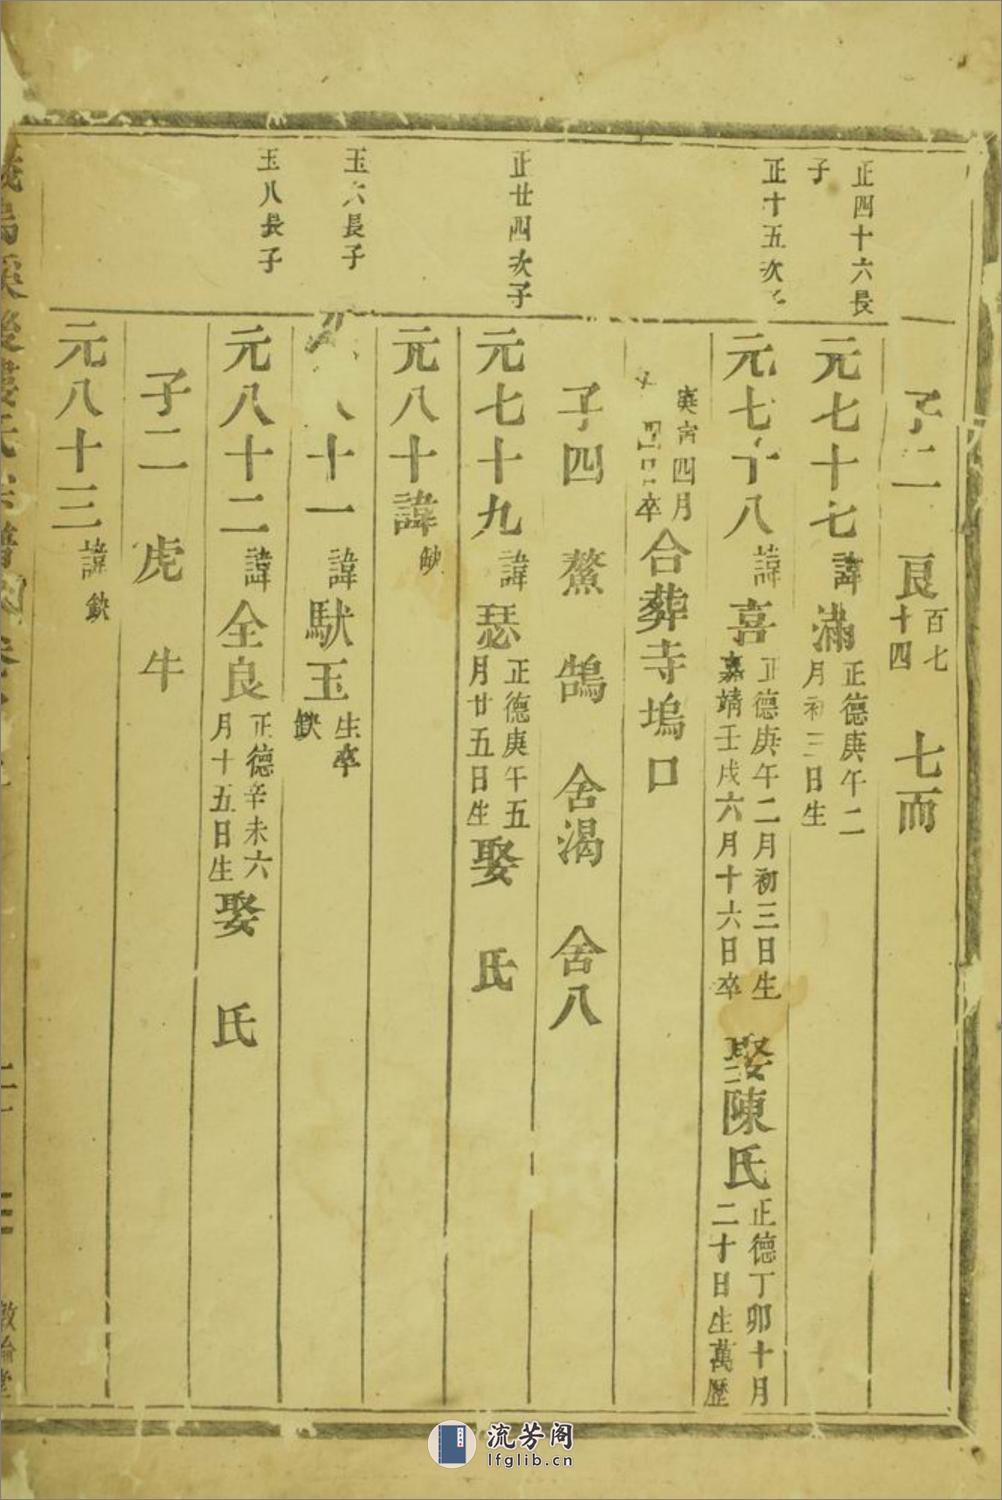 子二　艮百七十四　七而
正四十六長子
元七十七諱滿正德庚午二月初三日生
正十五次子
元七十八諱喜正德庚午二月初三日生嘉靖壬戌六月十六日卒娶陳氏正德丁卯十月二十日生萬歷
庚寅四月卒合葬寺塢口
子四　鰲　鵠　舍渴　舍八
正廿四次子
元七十九諱瑟正德庚午五月廿五日生娶　氏
元八十諱缺
玉六長子
十一諱馱玉生卒缺
玉八長子
元八十二諱全良正德辛未六月十五日生娶　氏
子二　虎　牛
元八十三諱缺
流芳阁
lfglib.cn